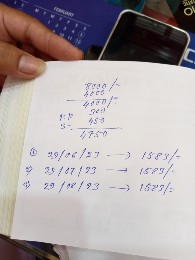 FEBRUARY
8000/-
4000
4000/-
300
450
4750
① 29/06/23 → 1583/-
2) 29/07/23 → 1583/-
3) 29/08/23 → 1583/-